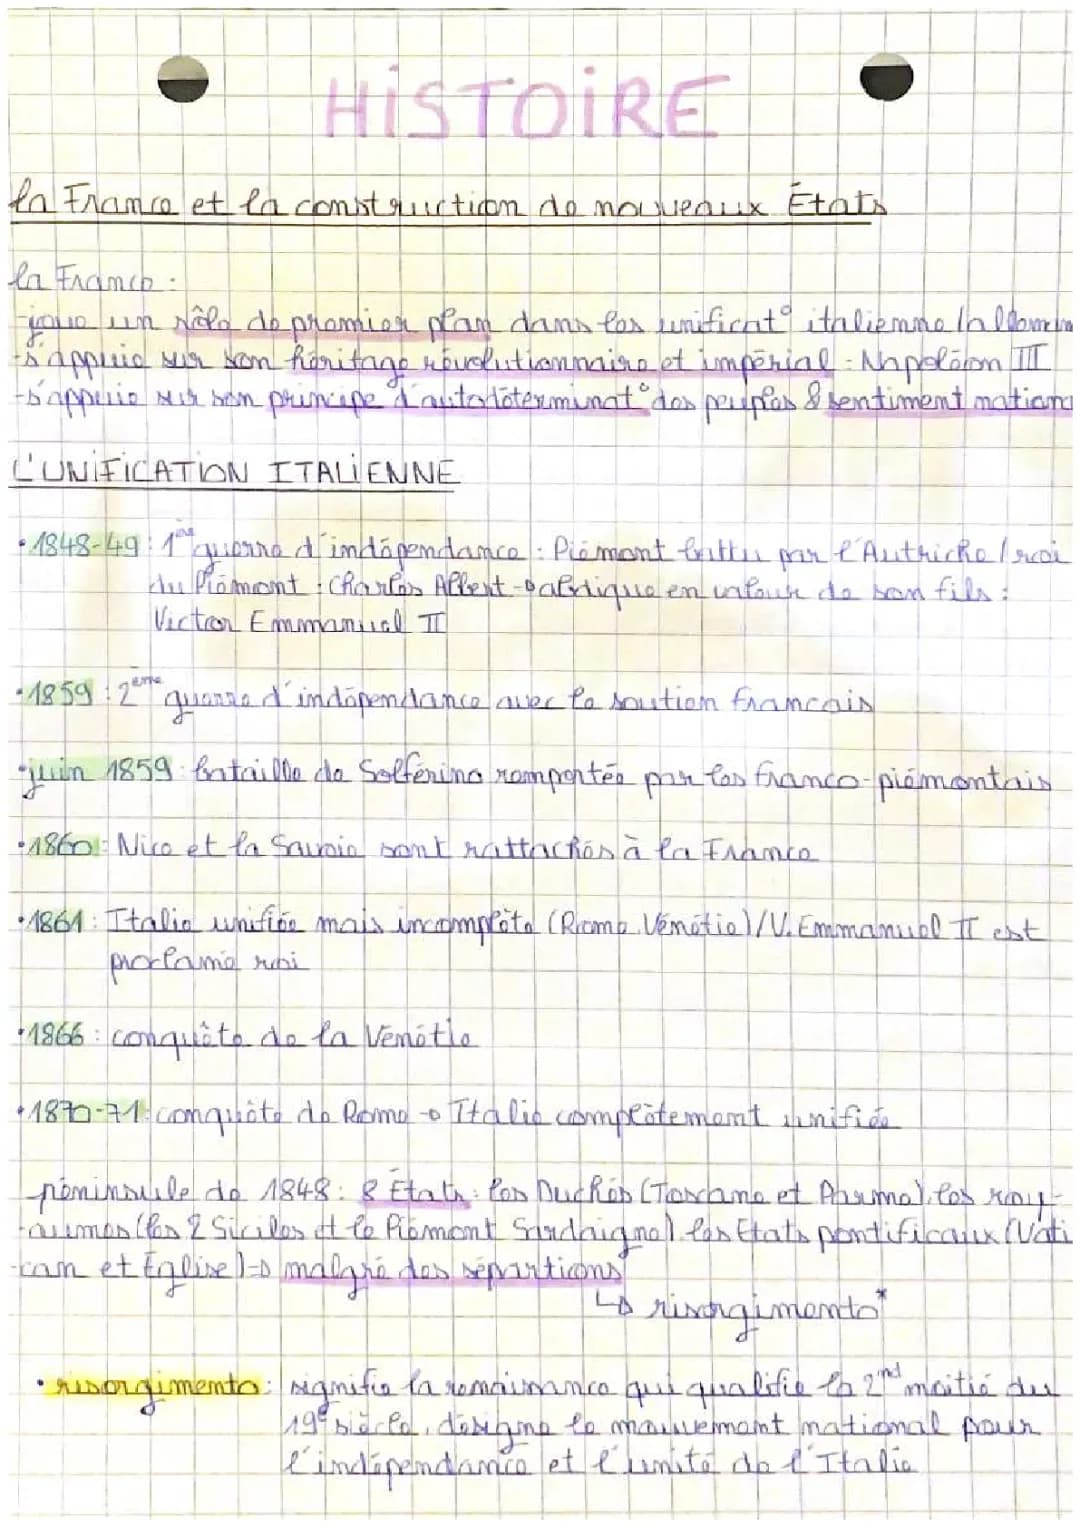 HiSTOiRE
la France et la construction de nouveaux États
la France :
-joue un rôle de premier plan dans les unificat° italienne / allem
-s'appuie sur son héritage révolutionnaire et impérial - Napoléon III
-s'appuie sur son principe d'autodéterminat° des peuples & sentiment nationa
L'UNiFiCATiON ITALiENNE
• 1848-49 : 1ère guerre d'indépendance : Piémont battu par l'Autriche / roi
du Piémont : Charles Albert → abdique en valeur de son fils :
Victor Emmanuel II
• 1859 : 2ème guerre d'indépendance avec le soutien francais
• juin 1859 : bataille de Solférino remportée par les franco-piémontais
• 1860 : Nice et la Savoie sont rattachés à la France
• 1861 : Italie unifiée mais incomplète (Rome, Vénétie) / V. Emmanuel II est
proclamé roi
• 1866 : conquête de la Vénétie
• 1870-71 : conquête de Rome → Italie complètement unifiée
péninsule de 1848 : 8 États : les Duchés (Toscane et Parme), les roy-
-aumes (les 2 Siciles et le Piémont Sardaigne) les États pontificaux (Vati
-can et Église) → malgré des répartitions
↳ risorgimento*
• risorgimento : signifie la renaissance qui qualifie la 2nd moitié du
19e siècle, désigne le mouvement national pour
l'indépendance et l'unité de l'Italie